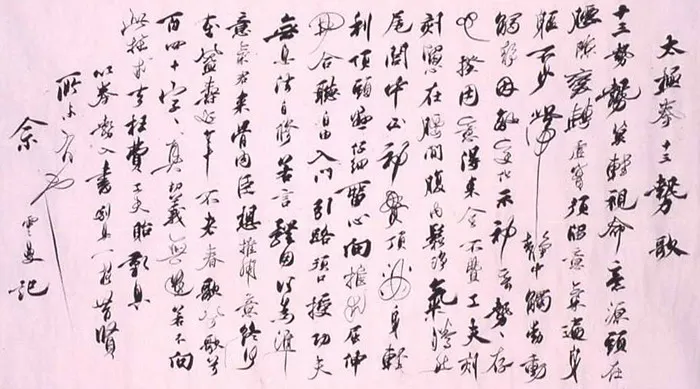 太極拳十三勢歌
十三勢勢莫輕視命意源頭在
腰隙變轉虛實須留意氣遍身
軀不少滯靜中觸動動
觸靜因敵變化示神奇勢、存
心揆用意得來全不費工夫刻
刻留心在腰間腹內鬆靜氣騰然
尾閭中正神貫頂滿身輕
利頂頭懸仔細留心向推求屈伸
開合聽自由入門引路須口授功夫
無息法自修若言體用何為準
意氣君來骨肉臣想推用意終何
在益壽延年不老春歌兮歌兮
百四十字、真切義無遺若不向
此推求去枉費工夫貽歎息
以拳
余
記